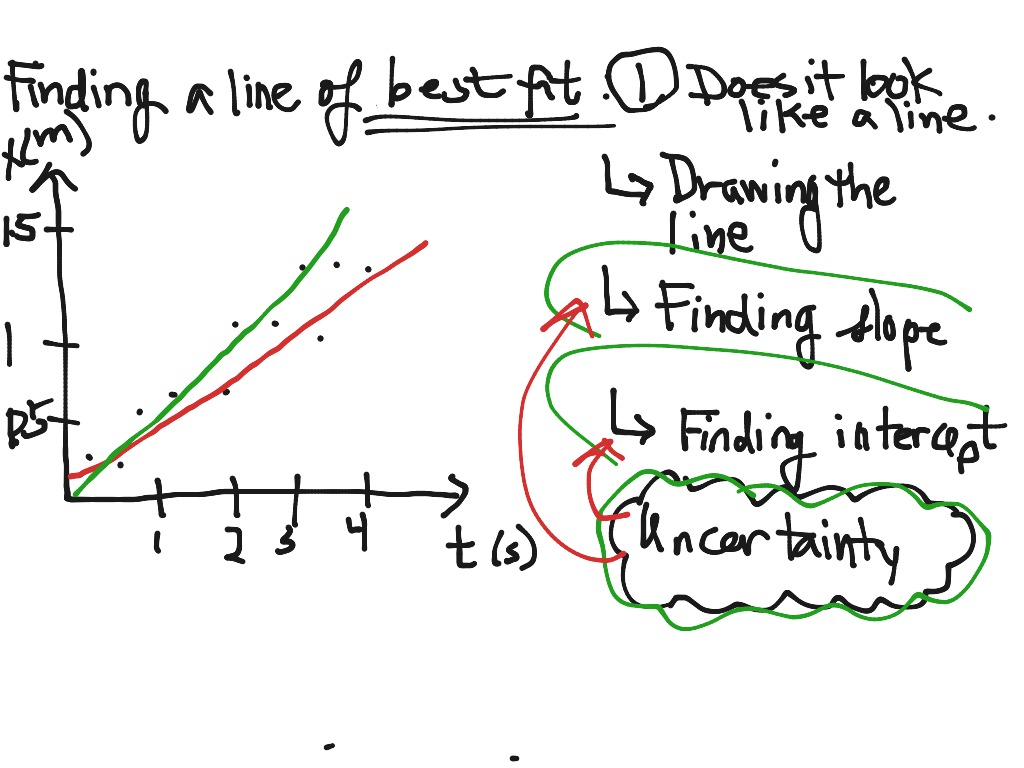 Finding a line of best fit. ① Does it look
like a line.
x(m)
↳ Drawing the
line
15
↳ Finding slope
1
↳ Finding intercept
Uncertainty
1 2 3 4 t (s)